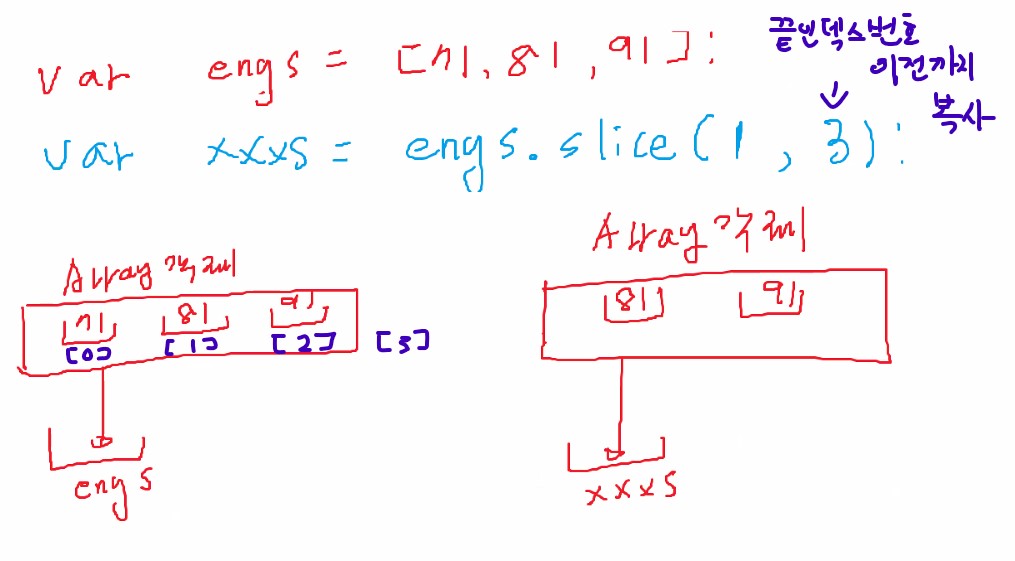 var engs = [71, 81, 91];
끝인덱스번호
이전까지
복사
var xxxs = engs.slice(1, 3);
Array 객체
71 81 91
[0] [1] [2] [3]
engs
Array 객체
81 91
xxxs